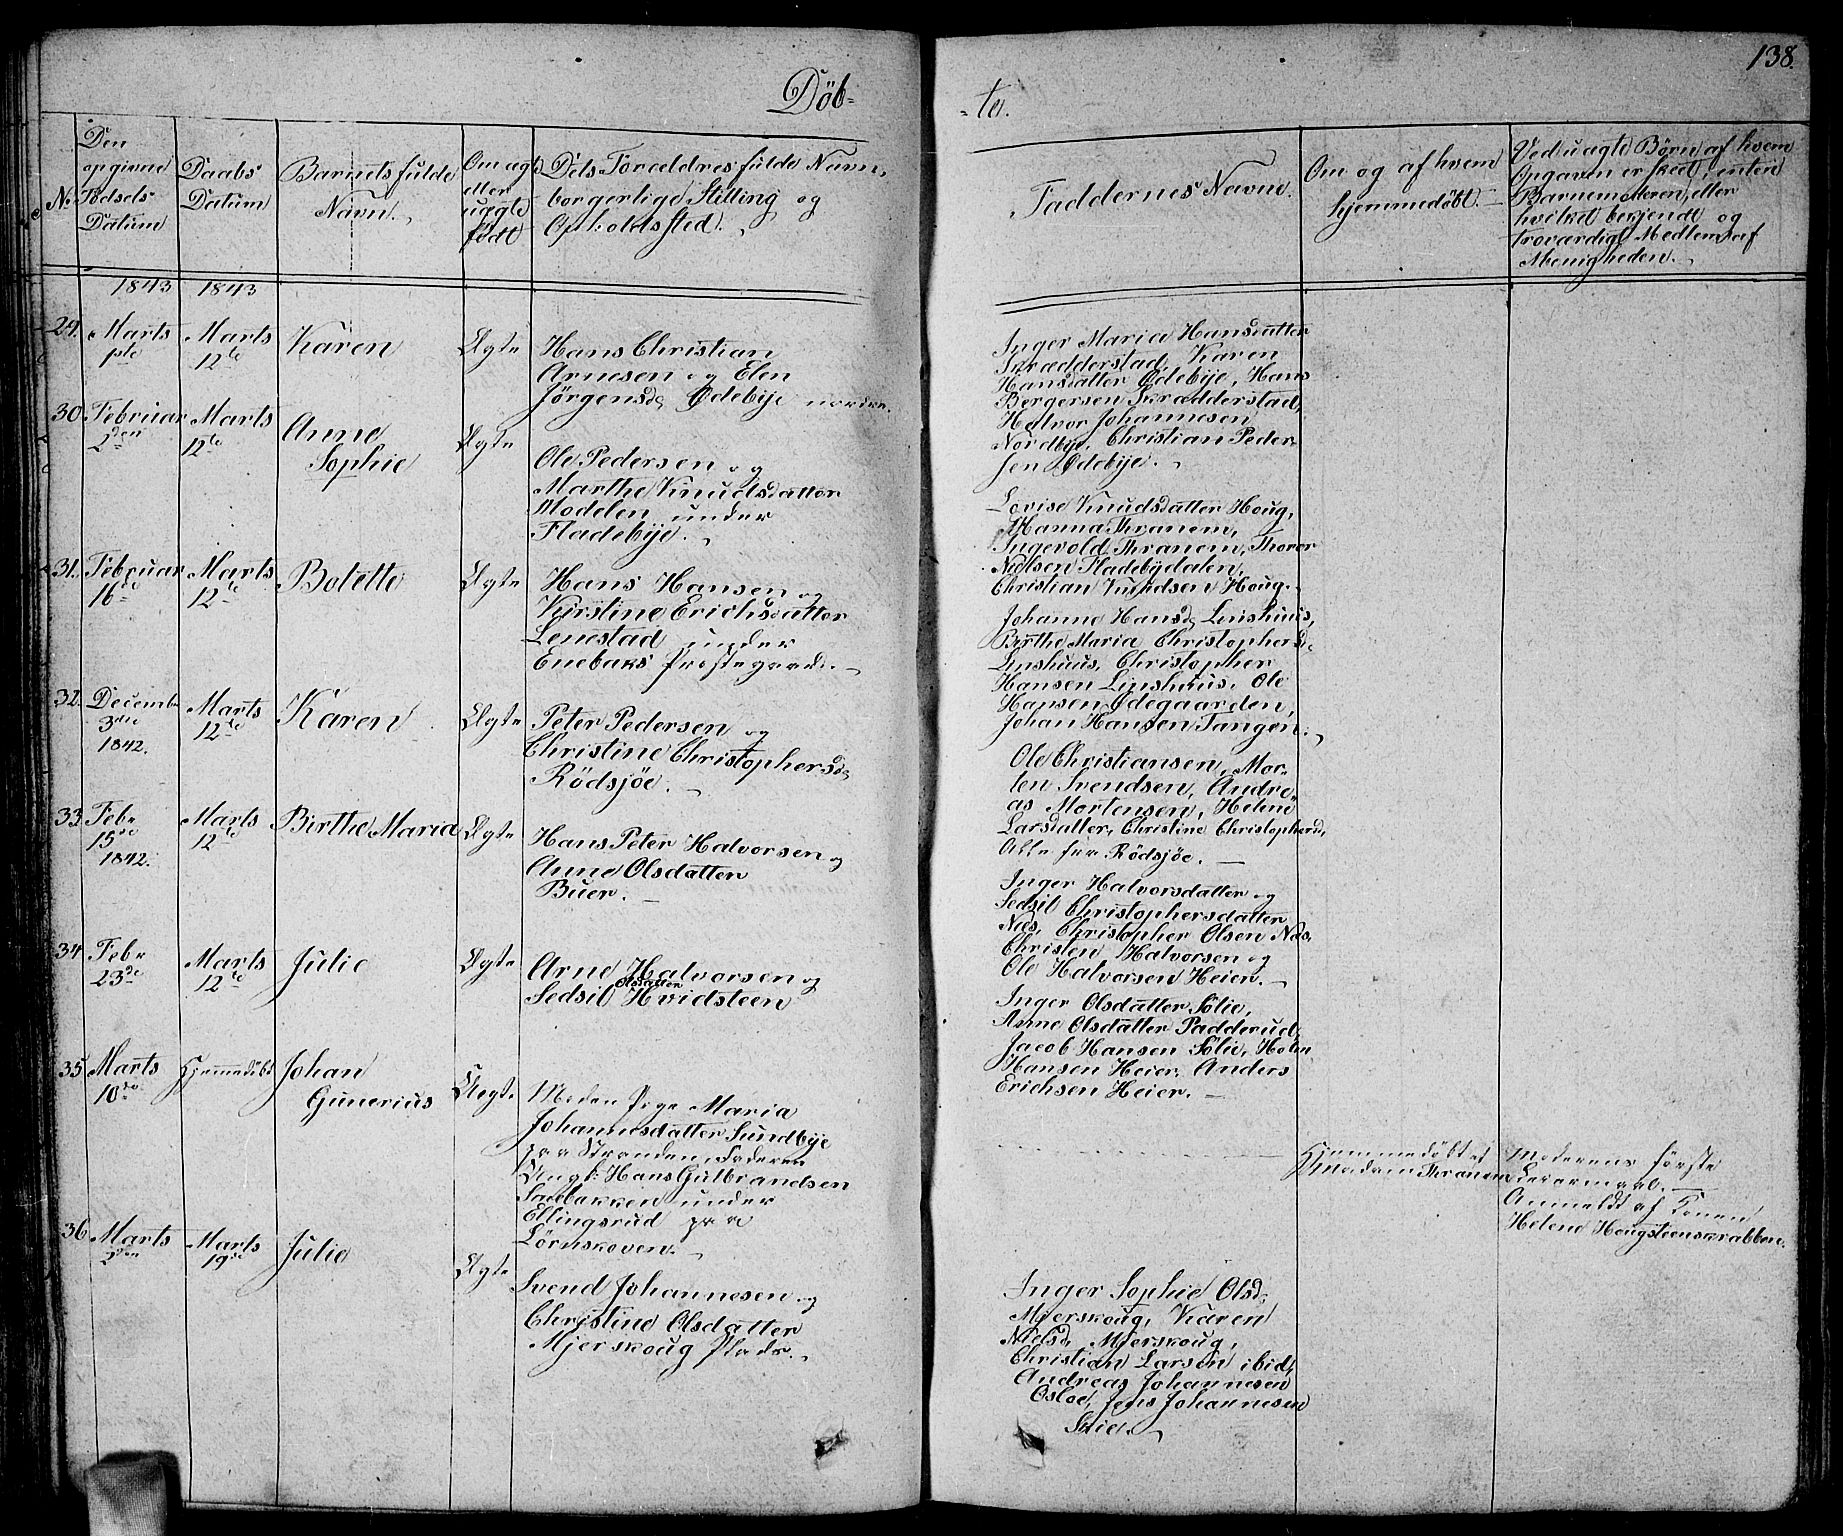 138.
Döb-
-te.
No.
Den
opgivne
Födsels
Datum
Daabs
Datum
Barnets fulde
Navn.
Om ægte
eller
uægte
født
Dets Forældres fulde Navn,
borgerlige Stilling og
Opholdssted.
Faddernes Navne.
Om og af hvem
hjemmedöbt.
Ved uægte Børn af hvem
Opgaven er skedt, enten
Barnemoderen, eller
hvilket bekjendt og
troværdigt Medlem af
Menigheden.
1843 1843
29.
Marts
1ste
Marts
12te
Karen
Ægte
Hans Christian
Arnesen og Elen
Jörgensd. Ödebÿe nordre.
Inger Maria Hansdatter
Skrædderstad, Karen
Hansdatter Ödebÿe, Hans
Bergersen Skrædderstad,
Halvor Johannesen
Nordbÿe, Christian Peder-
sen Ödebÿe.
30.
Februar
2den
Marts
12te
Anne
Sophie
Ægte
Ole Pedersen og
Marthe Knudsdatter
Modelen under
Fladebÿe.
Lovise Knudsdatter Houg,
Hanna Thranem,
Ingevold Thranem, Thorer
Nielsen Fladebÿdalen,
Christian Knudsen Houg.
31.
Februar
16de
Marts
12te
Bolette
Ægte
Hans Hansen og
Kirstine Erichsdatter
Lenestad under
Enebaks Prestegaard.
Johanne Hansd. Linshuus,
Birthe Maria Christophersd.
Linshuus, Christopher
Hansen Linshuus, Ole
Hansen Ödegaarden,
Johan Hansen Tangen.
32.
Decemb.
3die
1842.
Marts
12te
Karen
Ægte
Peter Pedersen og
Christine Christophersd.
Rödsjöe.
Ole Christiansen, Mor-
ten Svendsen, Andre-
as Mortensen, Helene
Larsdatter, Christine Christophersd.
Alle fra Rödsjöe.
33.
Feb.
15de
1842.
Marts
12te
Birthe Maria
Ægte
Hans Peter Halvorsen og
Anne Olsdatter
Buer.
Inger Halvorsdatter og
Sedsil Christophersdatter
Næs, Christopher Olsen Næs,
Christen Halvorsen og
Ole Halvorsen Heier.
34
Feb.
23de
Marts
12te
Julie
Ægte
Arne Halvorsen og
Olsdatter
Sedsil Hvidsteen
Inger Olsdatter Sölie,
Anne Olsdatter Padderud,
Jacob Hansen Sölie,
Hansen Heier, Anders
Erichsen Heier.
35
Marts
10de
Hjemmedöbt
Johan
Gunerius
Uægte
Moden Pige Maria
Johannesdatter Sundbÿe
paa Stranden, Faderen
Ungk: Hans Gulbrandsen
under
Ellingsrud paa
Lörnskoven.
Hjemmedöbt af
Madam Thranem
Moderens förste
Leiermaal.
Anmeldt af Konen
Helene Hougsteenskrabben.
36
Marts
2den
Marts
19de
Julie
Ægte
Svend Johannesen og
Christine Olsdatter
Mjerskoug Plads.
Inger Sophie Olsd.
Mjerskoug, Karen
Nielsd. Mjerskoug,
Christian Larsen ibid,
Andreas Johannesen
Osloe, Jens Johannesen